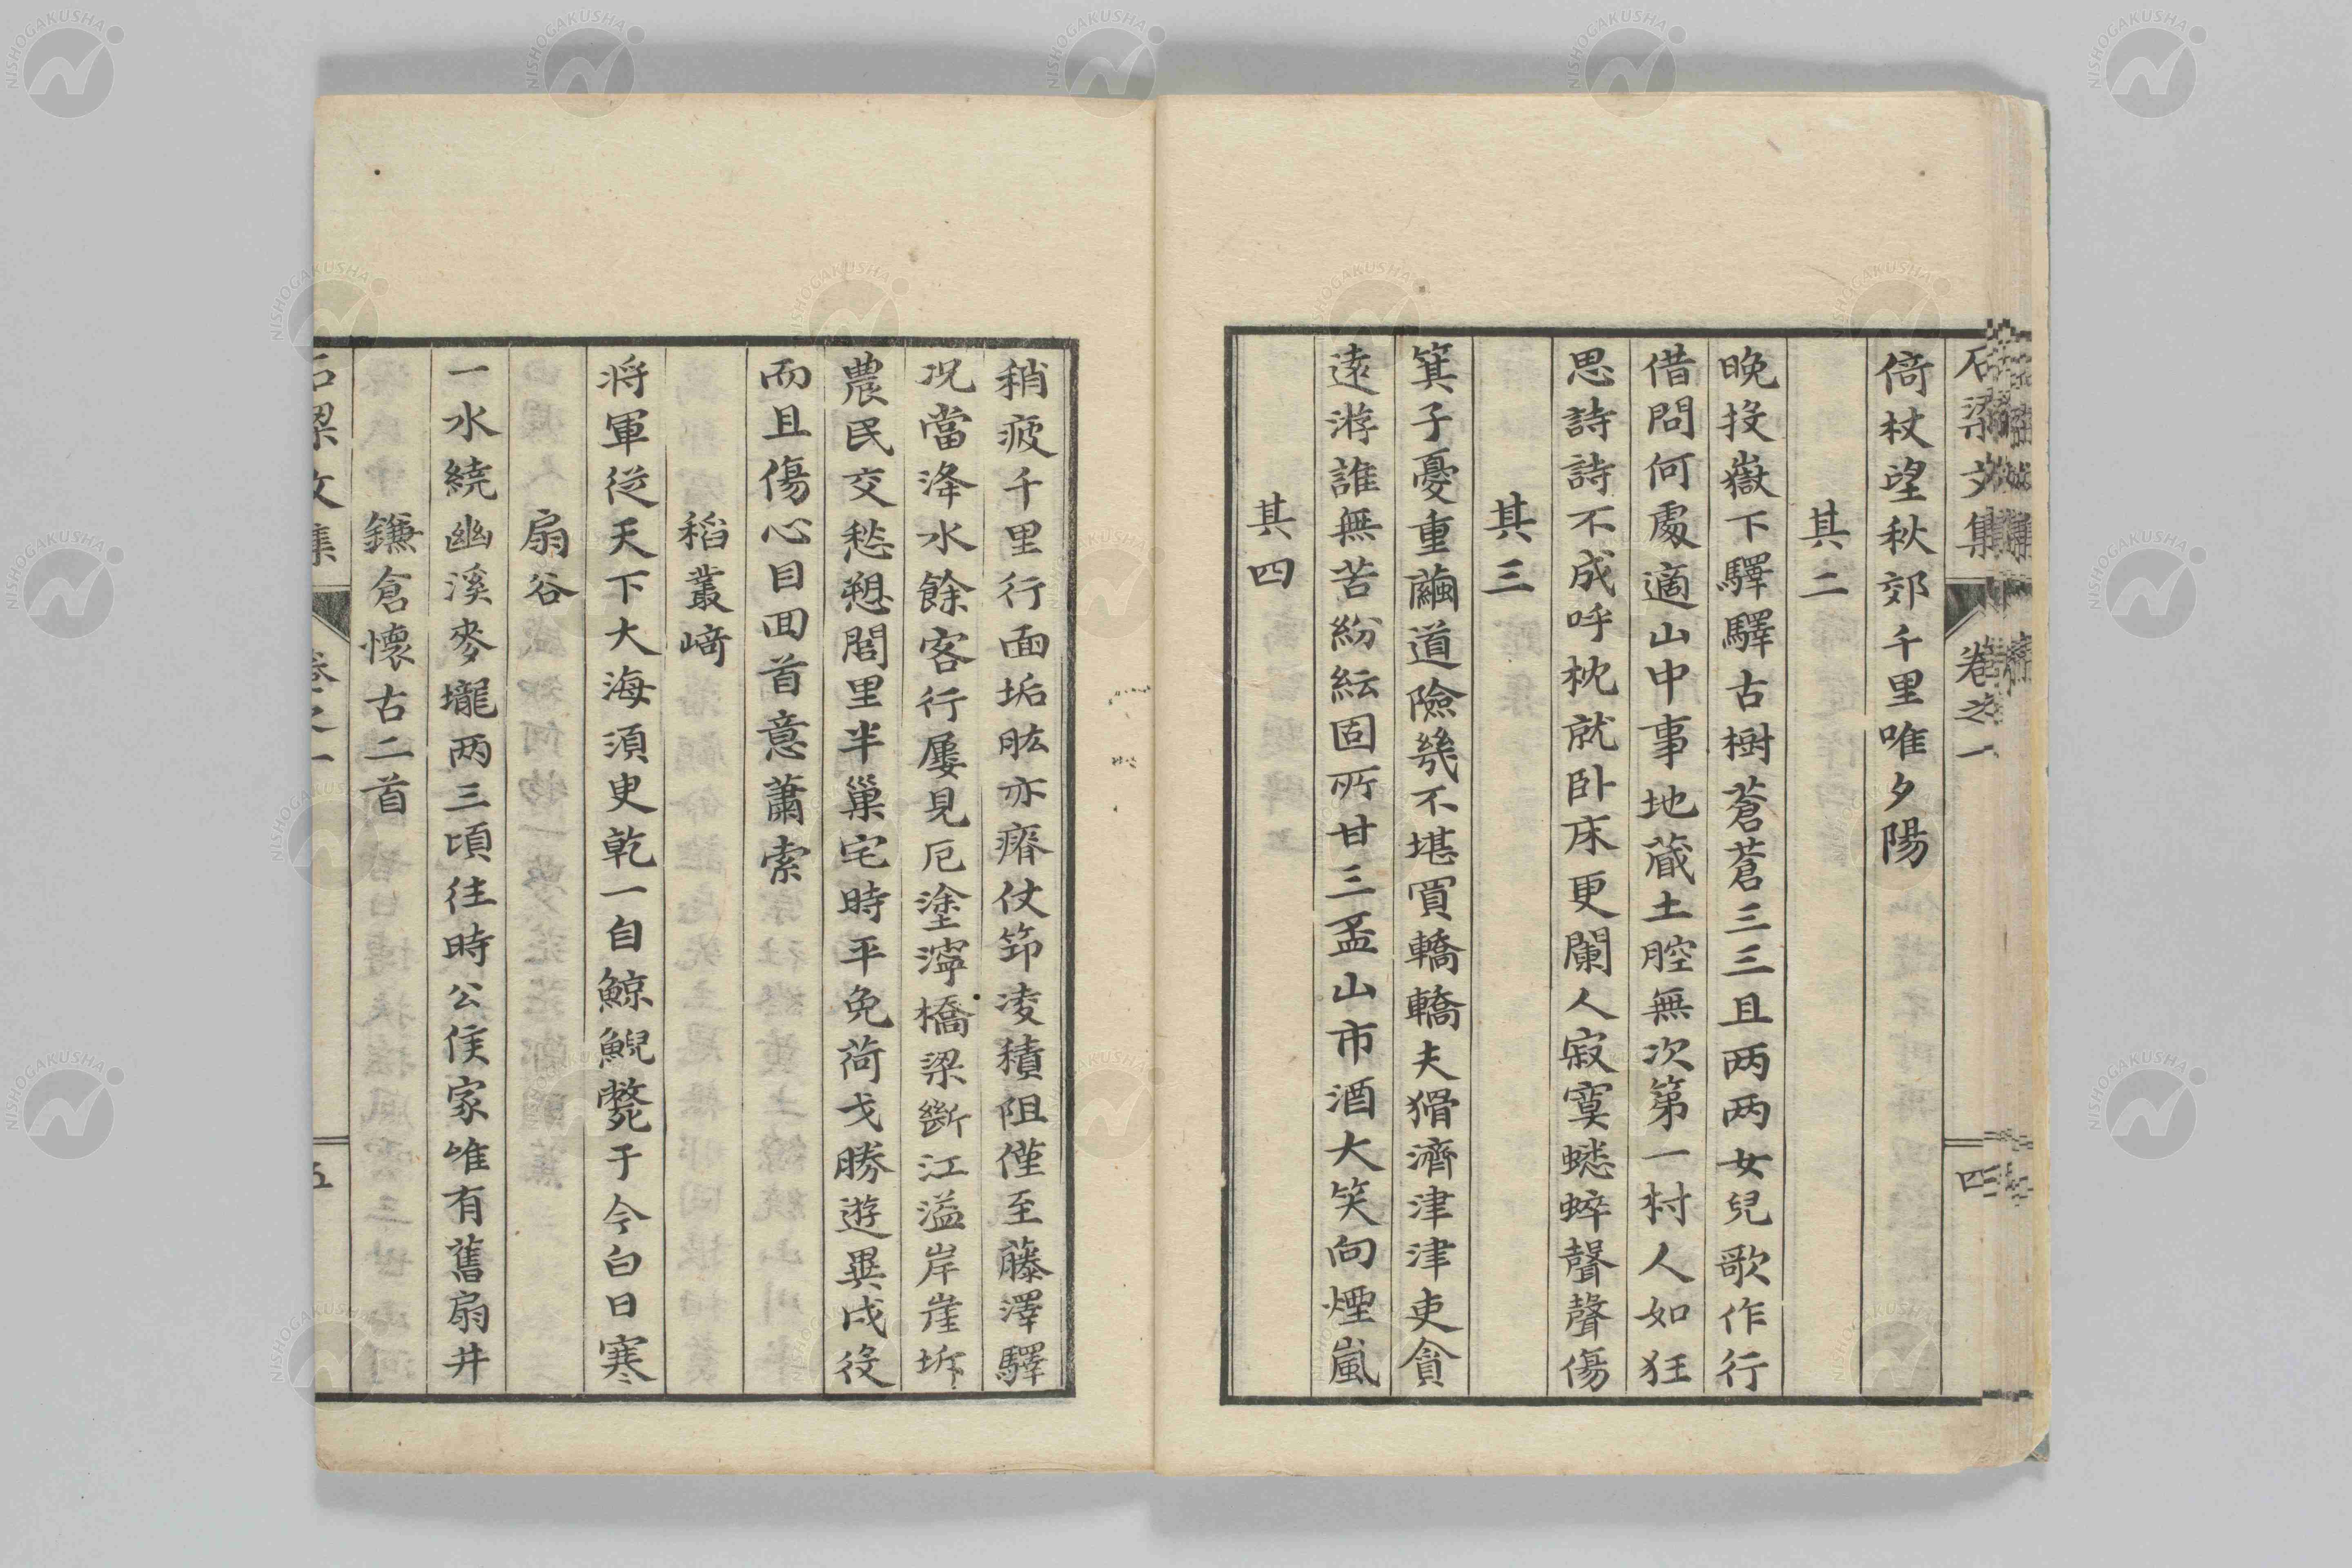 石梁文集 卷之一 四
倚杖望秋郊千里唯夕陽
其二
晚投嶽下驛驛古樹蒼蒼三三且两两女兒歌作行
借問何處適山中事地蔵土腔無次第一村人如狂
思詩詩不成呼枕就卧床更闌人寂寞蟋蟀聲聲傷
其三
箕子憂重繭道險幾不堪買轎轎夫猾濟津津吏貪
遠游誰無苦紛紜固所甘三盃山市酒大笑向煙嵐
其四
稍疲千里行面垢肱亦瘠仗笻凌積阻僅至藤澤驛
况當洚水餘客行屢見厄塗濘橋梁斷江溢岸崖坼
農民交愁愬閭里半巢宅時平免荷戈勝遊異戍役
而且傷心目回首意蕭索
稻叢﨑
将軍従天下大海須臾乾一自鯨鯢斃于今白日寒
扇谷
一水繞幽溪麥壠两三頃往時公侯家唯有舊扇井
鎌倉懷古二首
石梁文集 卷之一 五
NISHOGAKUSHA